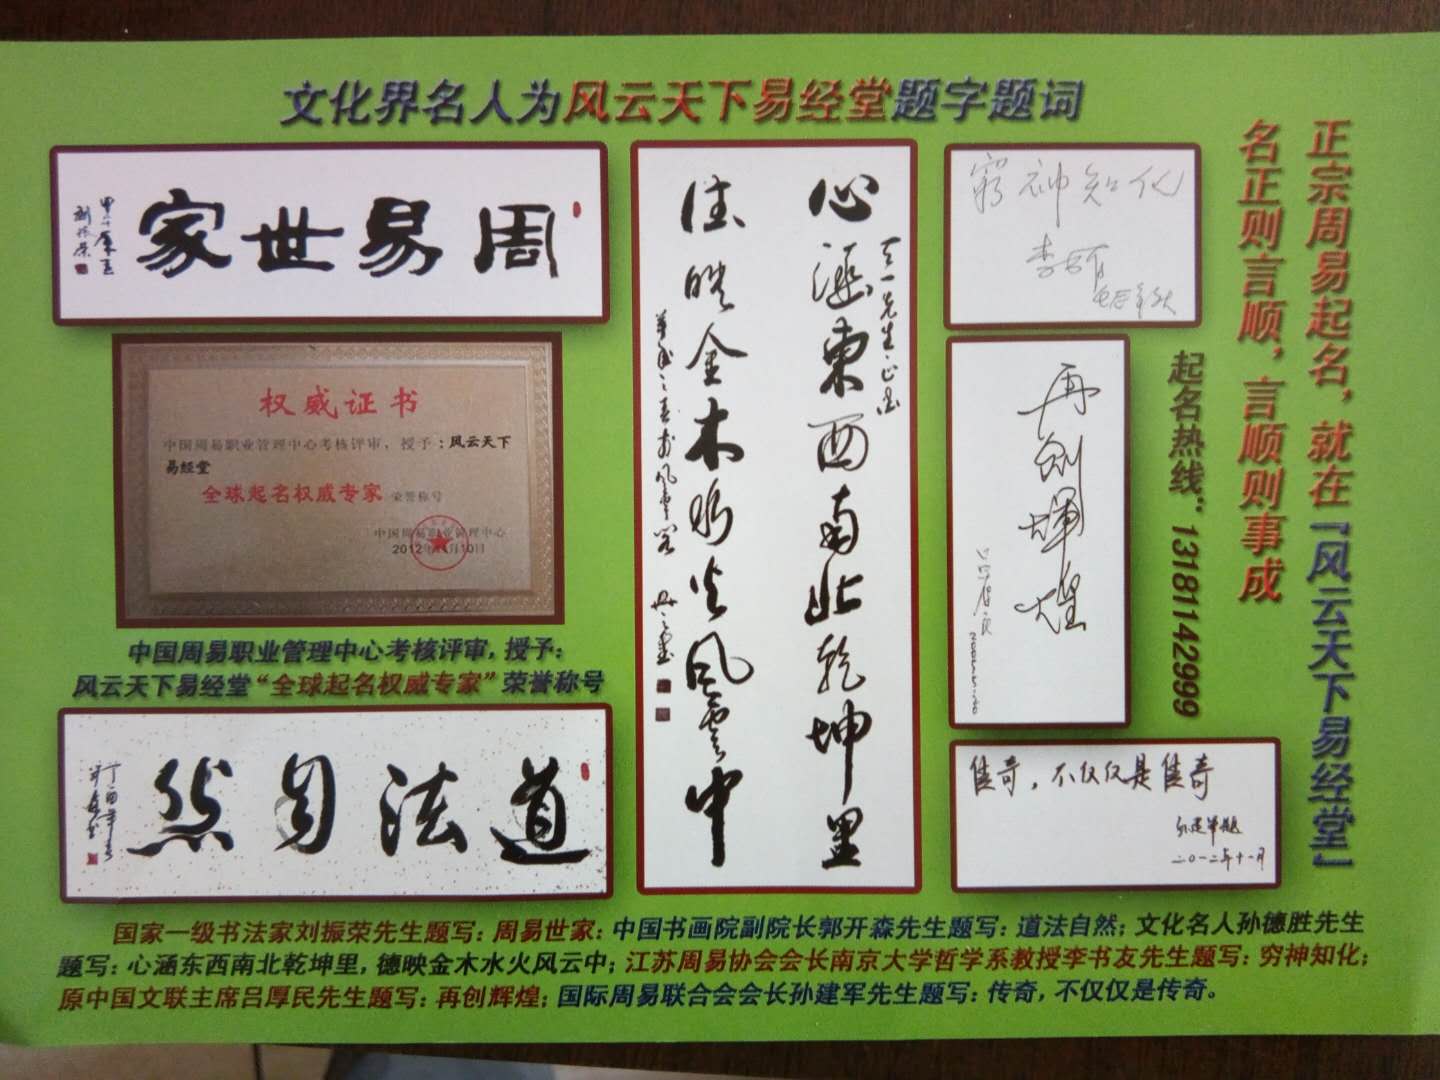 文化界名人为风云天下易经堂题字题词
正宗周易起名，就在『风云天下易经堂』
名正则言顺，言顺则事成
起名热线：13181142999
周易世家
刘振荣
权威证书
中国周易职业管理中心考核评审，授予：风云天下
易经堂
全球起名权威专家 荣誉称号
中国周易职业管理中心
中国周易职业管理中心考核评审，授予：
风云天下易经堂“全球起名权威专家”荣誉称号
道法自然
丁酉年春
心涵东西南北乾坤里
德映金木水火风云中
天一先生正书
穷神知化
再创辉煌
传奇，不仅仅是传奇
孙建军题
二〇一二年十一月
国家一级书法家刘振荣先生题写：周易世家；中国书画院副院长郭开森先生题写：道法自然；文化名人孙德胜先生
题写：心涵东西南北乾坤里，德映金木水火风云中；江苏周易协会会长南京大学哲学系教授李书友先生题写：穷神知化；
原中国文联主席吕厚民先生题写：再创辉煌；国际周易联合会会长孙建军先生题写：传奇，不仅仅是传奇。